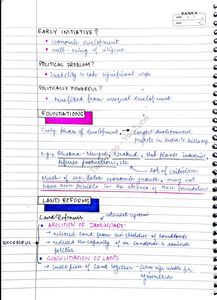 EARLY INITIATIVE?
• economic development
• well-being of citizens
POLITICAL PROBLEM?
• inability to take significant risk
POLITICALLY POWERFUL?
• benefitted from unequal development
FOUNDATIONS
Early phase of development → largest development projects in India's history
e.g. Bhakra-Nangal,
Much of our later economic growth may not
have been possible in the absence of these foundation
LAND REFORMS
Land Reforms
• ABOLITION OF ZAMINDARI
→ released land from the clutches of landlords
SUCCESSFUL
→ reduced the capacity of the landlords to dominate
politics
• CONSOLIDATION OF LAND
→ small piece of land together - farm size viable for
agriculture